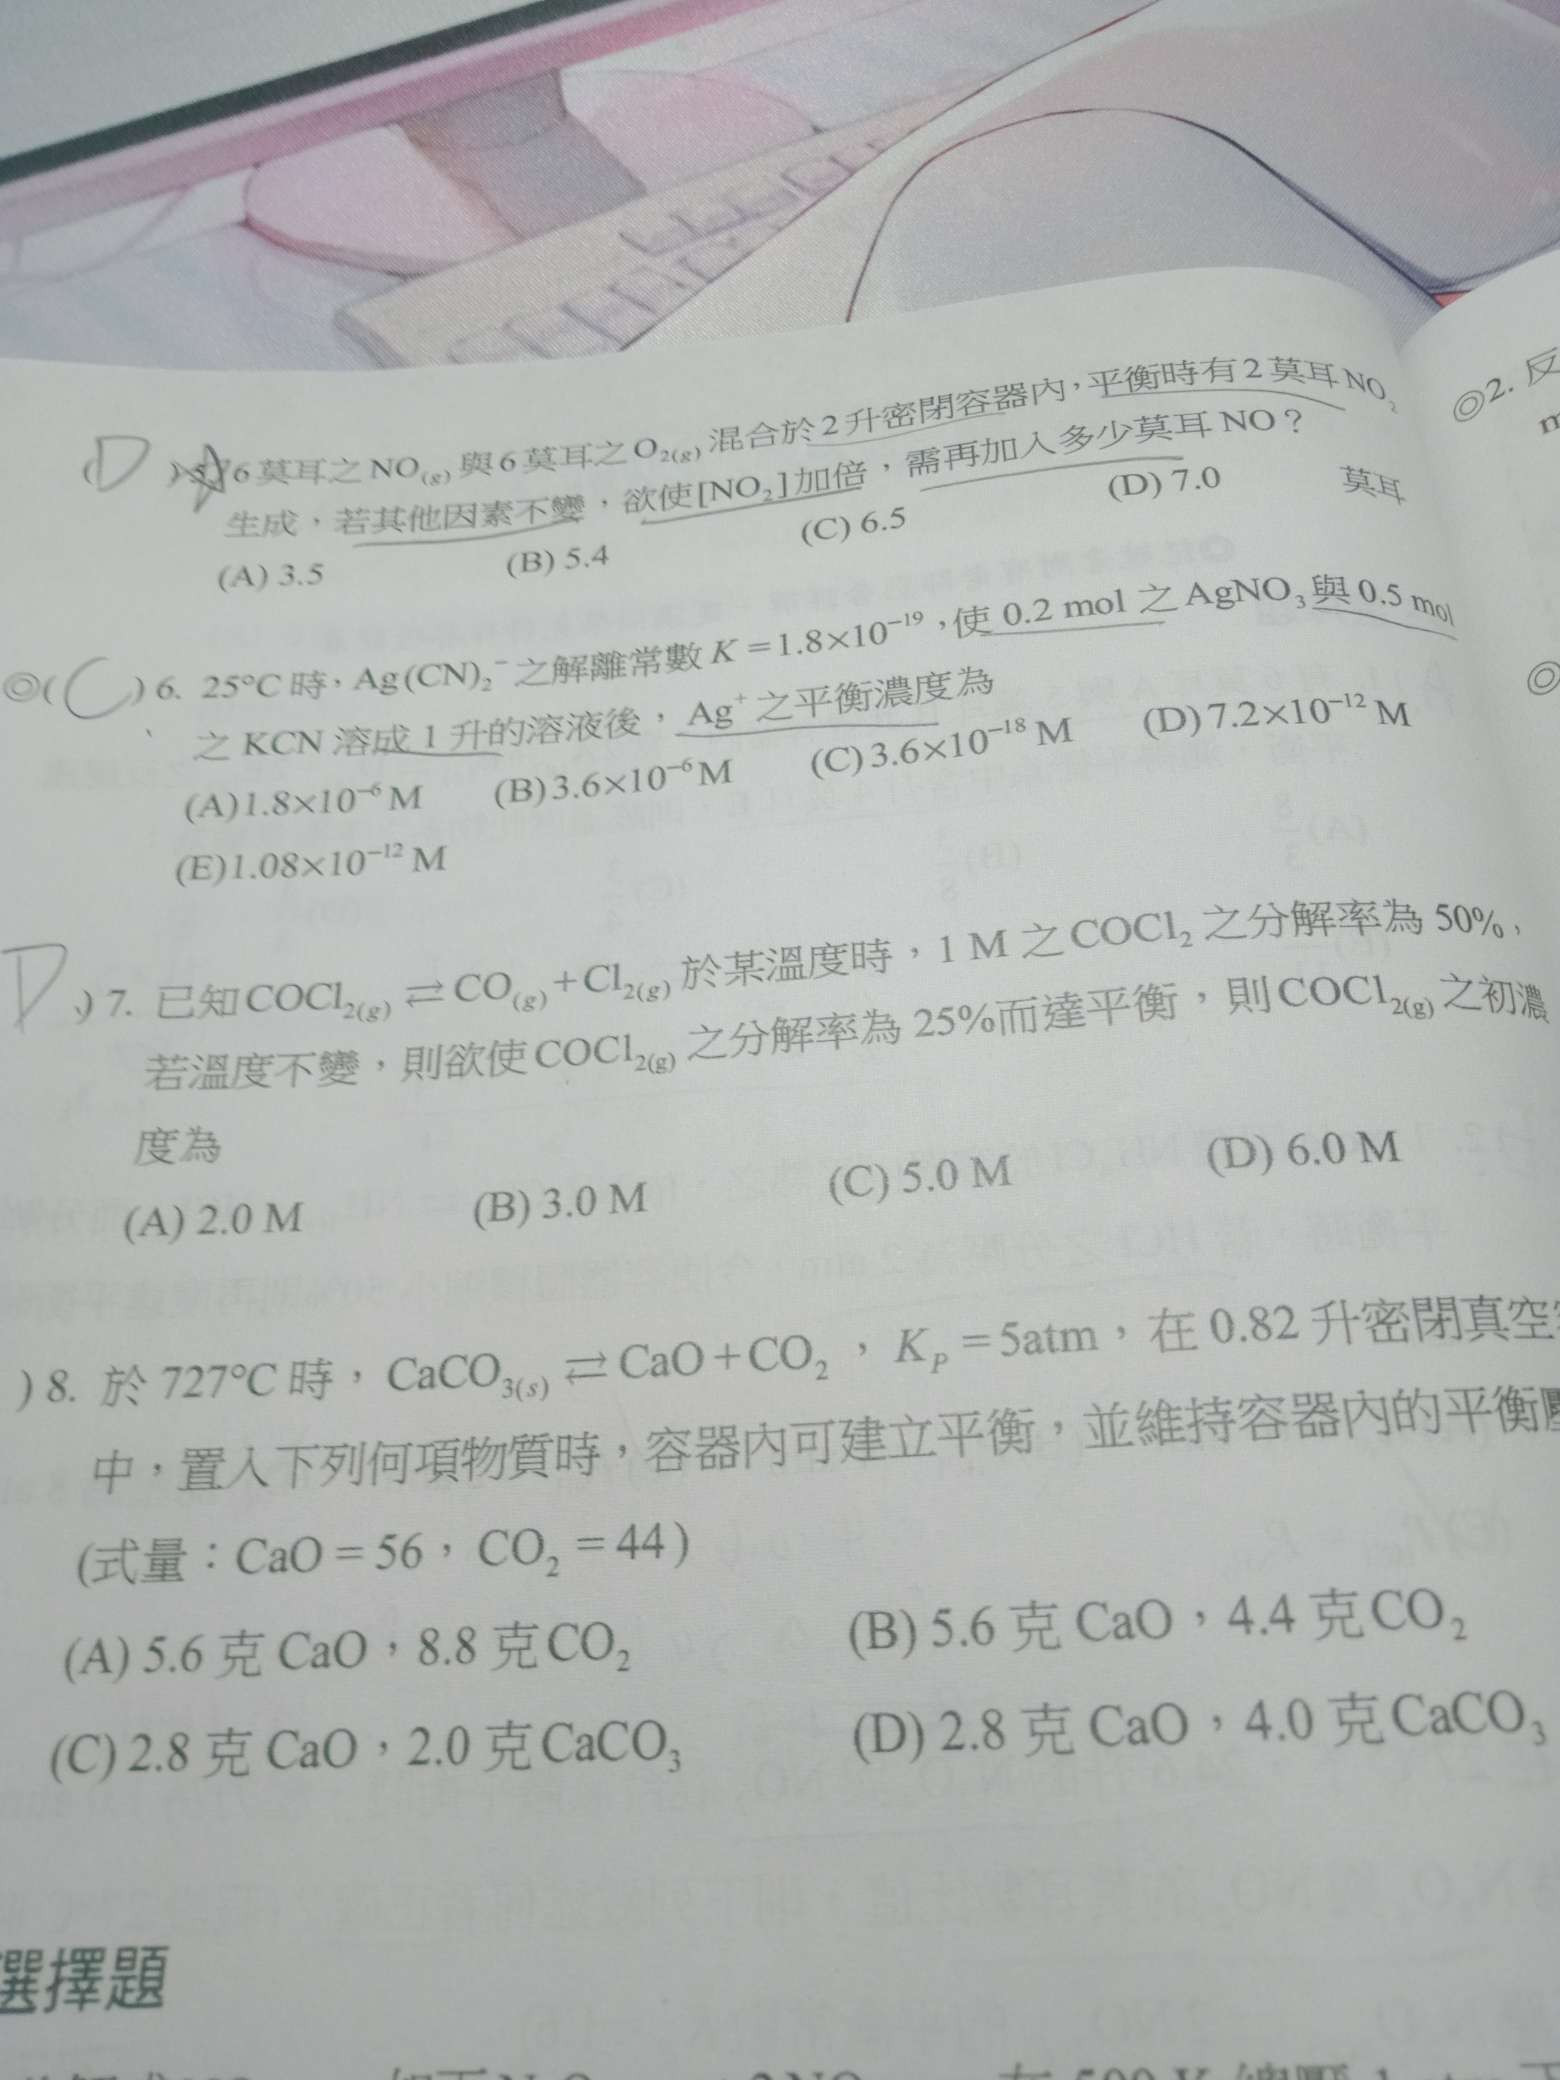 (D)5. 6莫耳之NO(g)與6莫耳之O2(g)混合於2升密閉容器內,平衡時有2莫耳NO2
生成,若其他因素不變,欲使[NO2]加倍,需再加入多少莫耳NO?
(A) 3.5 (B) 5.4 (C) 6.5 (D) 7.0 莫耳
◎(C)6. 25°C時,Ag(CN)2⁻之解離常數K=1.8×10⁻¹⁹,使0.2 mol之AgNO3與0.5 mol
之KCN溶成1升的溶液後,Ag⁺之平衡濃度為
(A)1.8×10⁻⁶M (B)3.6×10⁻⁶M (C)3.6×10⁻¹⁸M (D)7.2×10⁻¹²M
(E)1.08×10⁻¹²M
D)7. 已知COCl2(g)⇌CO(g)+Cl2(g)於某溫度時,1 M之COCl2之分解率為50%,
若溫度不變,則欲使COCl2(g)之分解率為25%而達平衡,則COCl2(g)之初濃
度為
(A) 2.0 M (B) 3.0 M (C) 5.0 M (D) 6.0 M
)8. 於727°C時,CaCO3(s)⇌CaO+CO2,KP=5atm,在0.82升密閉真空
中,置入下列何項物質時,容器內可建立平衡,並維持容器內的平衡
(式量:CaO=56,CO2=44)
(A) 5.6克CaO,8.8克CO2 (B) 5.6克CaO,4.4克CO2
(C) 2.8克CaO,2.0克CaCO3 (D) 2.8克CaO,4.0克CaCO3
選擇題
◎2. 反
◎